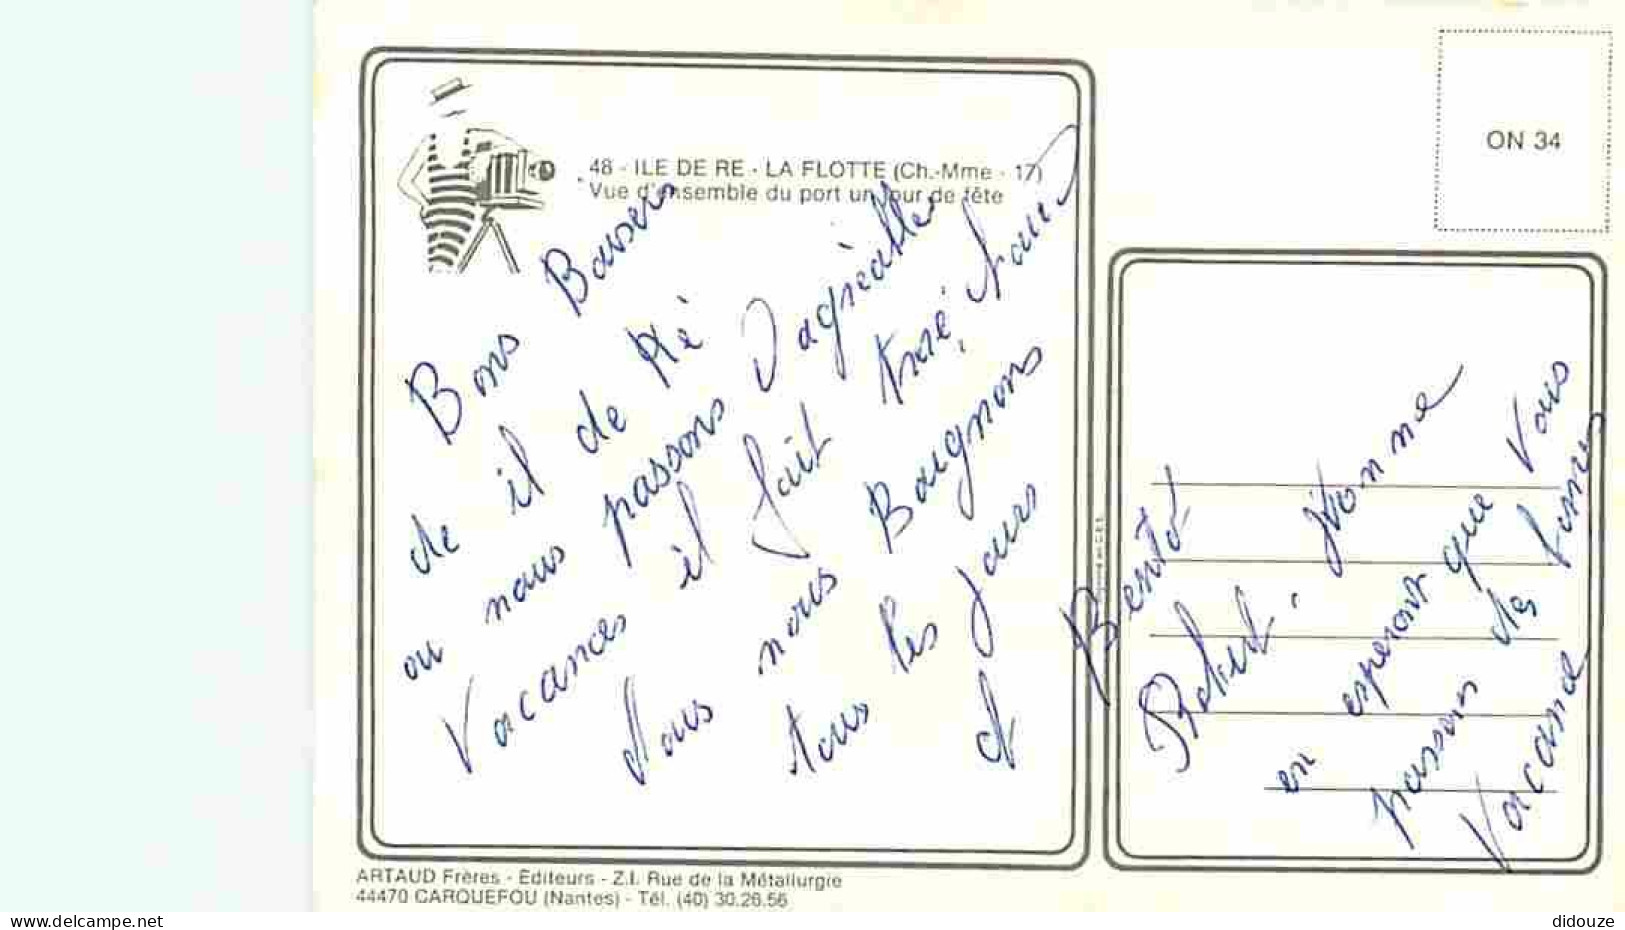 48 - ILE DE RE - LA FLOTTE (Ch.-Mme - 17)
Vue d'ensemble du port un jour de fête
ON 34
Bons Baisers
de il de Ré
ou nous passons d'agréable
Vacances il fait très
nous nous Baignons
tous les jours
a Bientôt
Yvonne
en esperant que vous
passer des
Vacance
ARTAUD Frères - Éditeurs - Z.I. Rue de la Métallurgie
44470 CARQUEFOU (Nantes) - Tél. (40) 30.26.56
www.delcampe.net
didouze